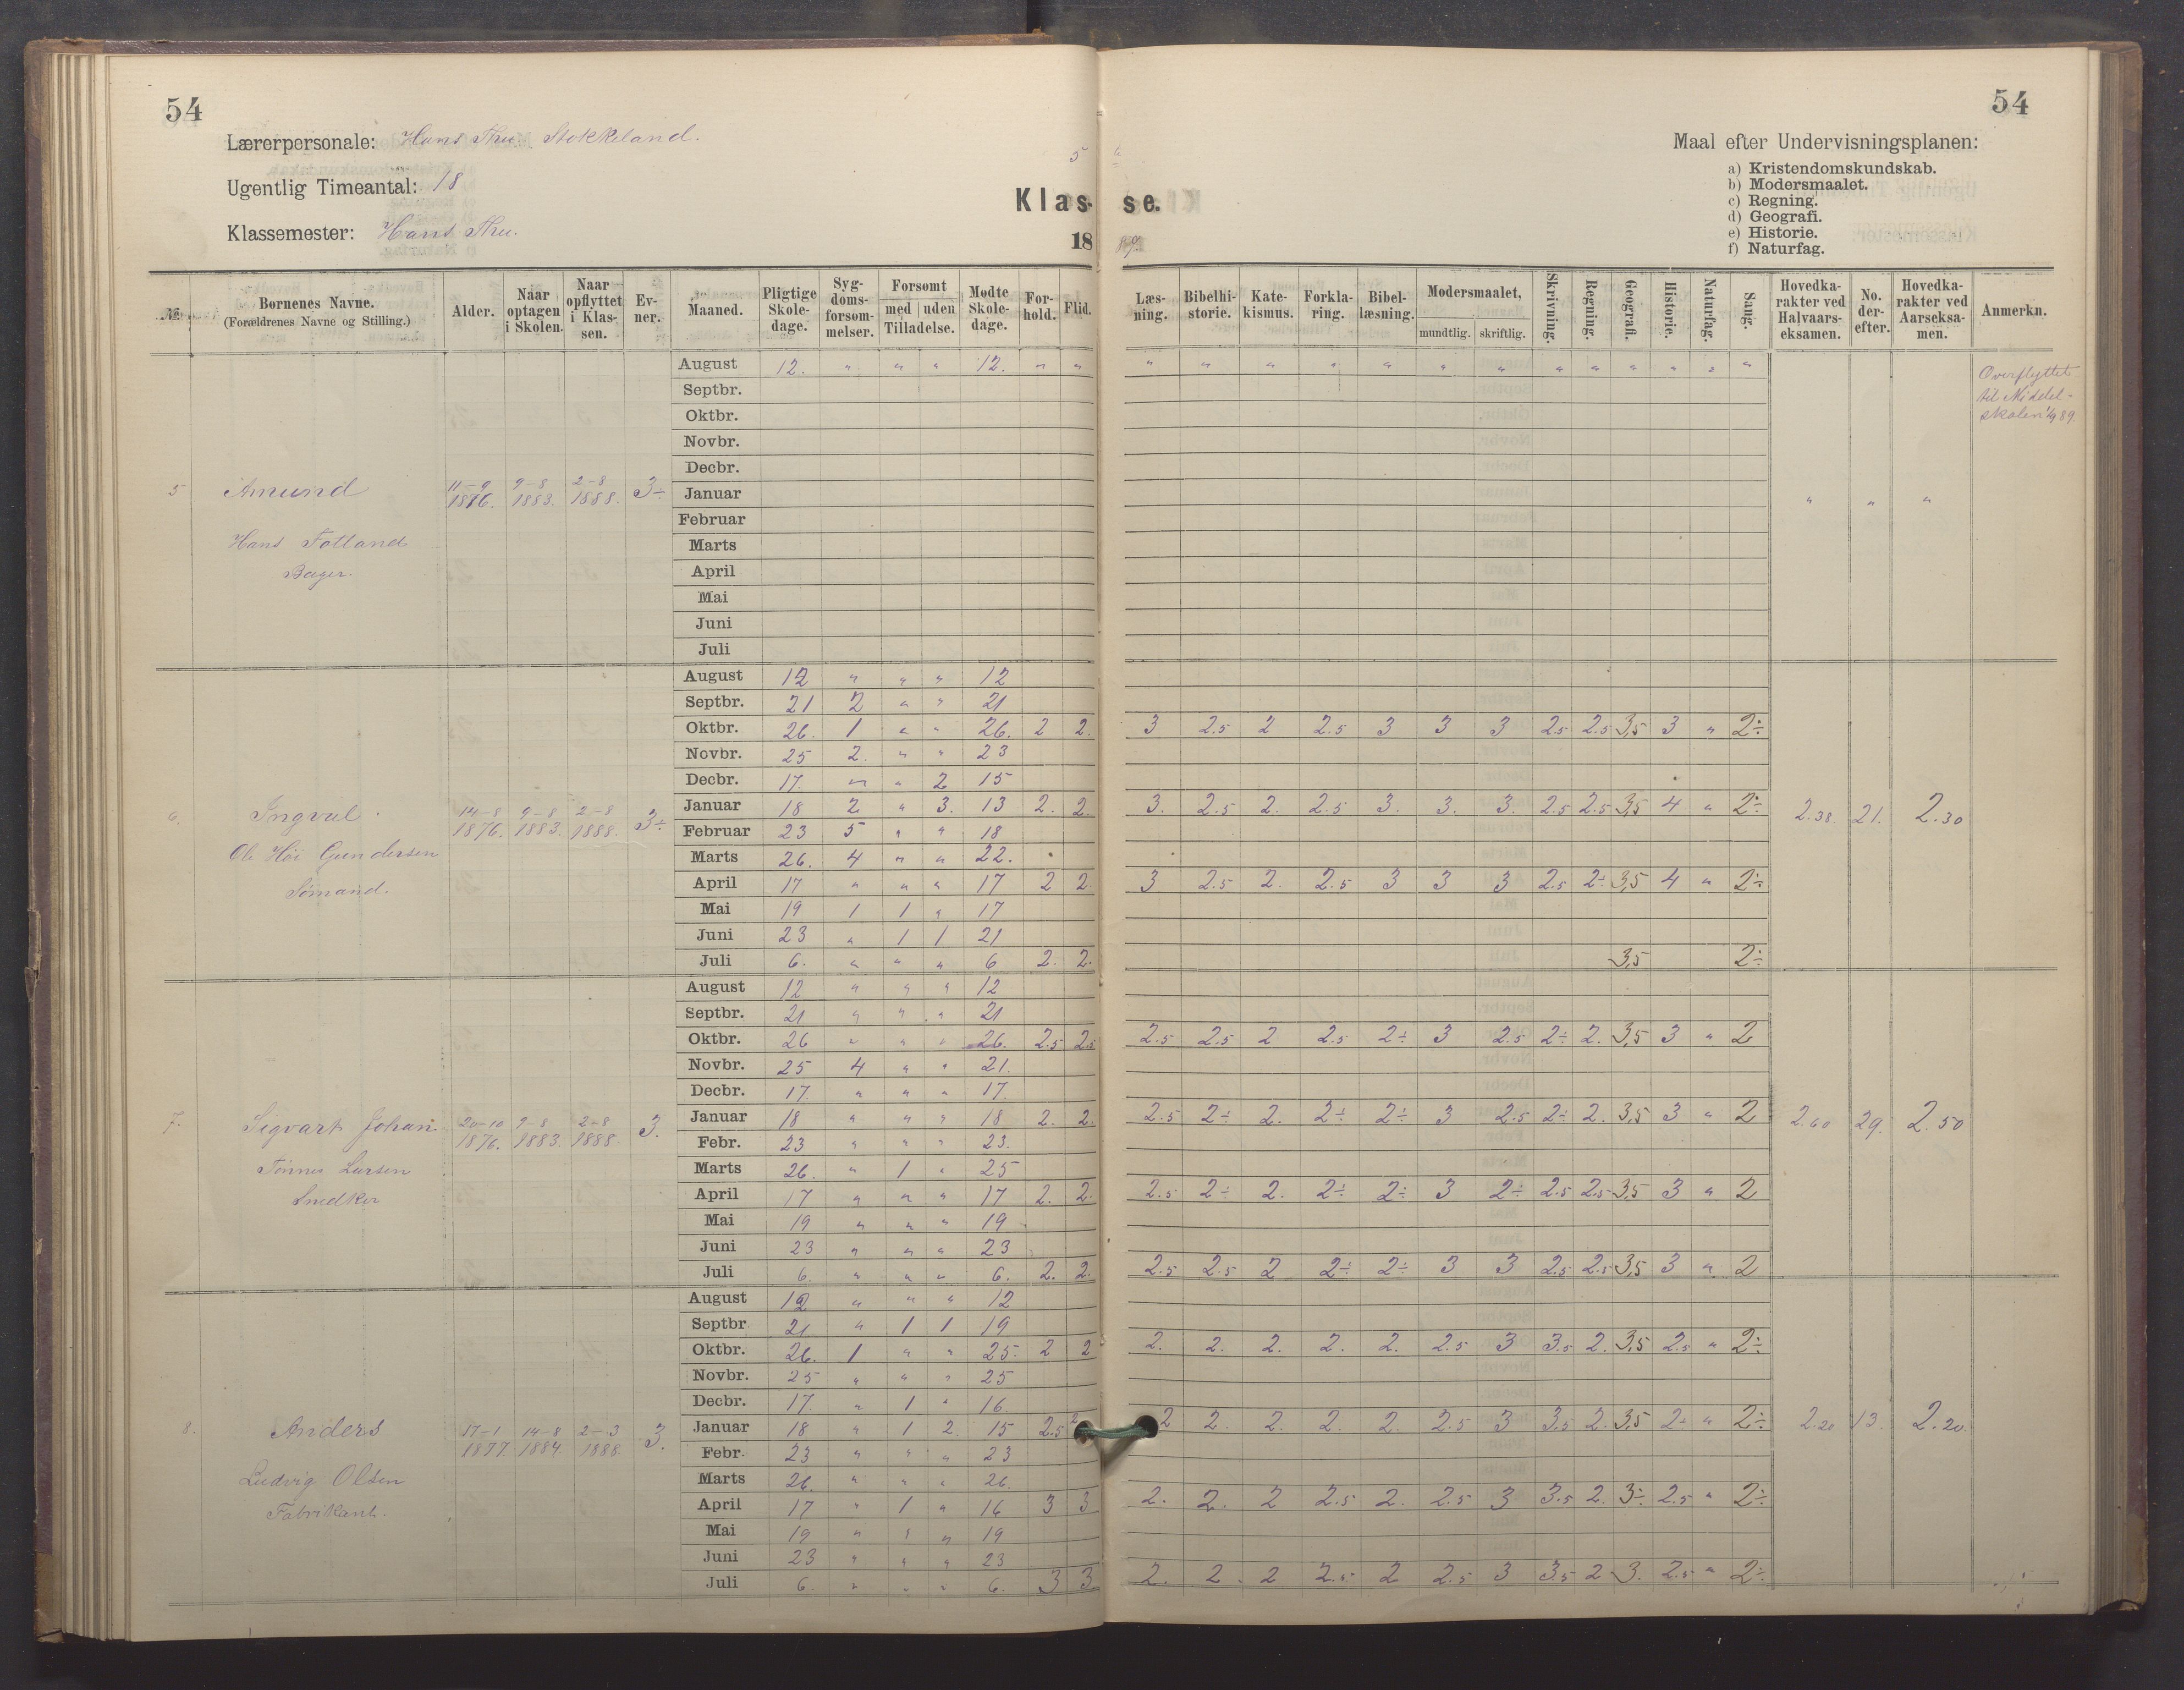 54
54
Lærerpersonale: Hans Thu. Stokkeland.
Ugentlig Timeantal: 18
Klassemester: Hans Thu.
5
Klas- se.
18 89.
Maal efter Undervisningsplanen:
a) Kristendomskundskab.
b) Modersmaalet.
c) Regning.
d) Geografi.
e) Historie.
f) Naturfag.
No. Børnenes Navne. (Forældrenes Navne og Stilling.) Alder. Naar optagen i Skolen. Naar opflyttet i Klas-sen. Ev-ner. Maaned. Pligtige Skole-dage. Syg-doms-forsøm-melser. Forsømt med uden Tilladelse. Mødte Skole-dage. For-hold. Flid. Læs-ning. Bibelhi-storie. Kate-kismus. Forkla-ring. Bibel-læsning. Modersmaalet, mundtlig. skriftlig. Skrivning. Regning. Geografi. Historie. Naturfag. Sang. Hovedka-rakter ved Halvaars-eksamen. No. der-efter. Hovedka-rakter ved Aarseksa-men. Anmerkn.
August 12. " " " 12. " " " " " " " " " " " " " " "
Overflyttet
til Middel-
skolen 1/9 89.
Septbr.
Oktbr.
Novbr.
Decbr.
5 Amund 11-9 1876. 9-8 1883. 2-8 1888. 3÷ Januar " " "
Februar
Hans Fotland
Marts
Bager.
April
Mai
Juni
Juli
August 12 " " " 12
Septbr. 21 2 " " 21
Oktbr. 26. 1 " " 26. 2 2. 3 2.5 2 2.5 3 3 3 2.5 2.5 3,5 3 " 2÷
Novbr. 25 2. " " 23
Decbr. 17. " " 2 15
6. Ingval 14-8 1876. 9-8 1883. 2-8 1888. 3÷ Januar 18 2 " 3. 13 2. 2. 3. 2.5 2. 2.5 3. 3. 3. 2.5 2.5 3,5 4 " 2÷ 2.38. 21. 2.30
Februar 23 5 " " 18
Ole Höi Gundersen
Marts 26. 4 " " 22.
Sömand.
April 17 " " " 17 2 2. 3 2.5 2. 2.5 3 3 3 2.5 2÷ 3,5 4 " 2÷
Mai 19 1 1 " 17
Juni 23 " 1 1 21
Juli 6. " " " 6 2. 2. 3,5 2÷
August 12 " " " 12
Septbr. 21 " " " 21
Oktbr. 26 " " " 26. 2.5 2.5 2.5 2.5 2 2.5 2÷ 3 2.5 2÷ 2. 3,5 3 " 2
Novbr. 25 4 " " 21.
Decbr. 17. " " " 17.
7. Sigvart Johan 20-10 1876. 9-8 1883. 2-8 1888. 3. Januar 18 " " " 18 2. 2. 2.5 2÷ 2. 2÷ 2÷ 3 2.5 2÷ 2. 3,5 3 " 2 2.60 29. 2.50
Febr. 23 " " " 23.
Tönnes Larsen
Marts 26. " 1 " 25
Snedker
April 17 " " " 17 2. 2. 2.5 2÷ 2. 2÷ 2÷ 3 2÷ 2.5 2.5 3,5 3 " 2
Mai 19 " " " 19
Juni 23 " " " 23
Juli 6. " " " 6. 2. 2. 2.5 2.5 2 2÷ 2÷ 3 3 2.5 2.5 3,5 3 " 2
August 12 " " " 12
Septbr 21 " 1 1 19
Oktbr. 26. 1 " " 25. 2 2 2. 2. 2. 2. 2. 2.5 3 3.5 2. 3,5 2.5 " 2÷
Novbr. 25 " " " 25
Decbr. 17. " 1 " 16.
8. Anders 17-1 1877. 14-8 1884. 2-3 1888. 3. Januar 18 " 1 2. 15 2.5 2 2 2. 2. 2. 2. 2.5 3 3.5 2. 3,5 2÷ " 2÷ 2.20 13. 2.20.
Febr. 23 " " " 23
Ludvig Olsen
Marts 26. " " " 26.
Fabrikant.
April 17 " 1 " 16 3 3 2. 2. 2 2.5 2. 2.5 3 3.5 2. 3÷ 2.5 " 2÷
Mai 19 " " " 19
Juni 23 " " " 23
Juli 6. " " " 6. 3 3 2. 2. 2 2.5 2 2.5 3 3.5 2 3. 2.5 " 2÷